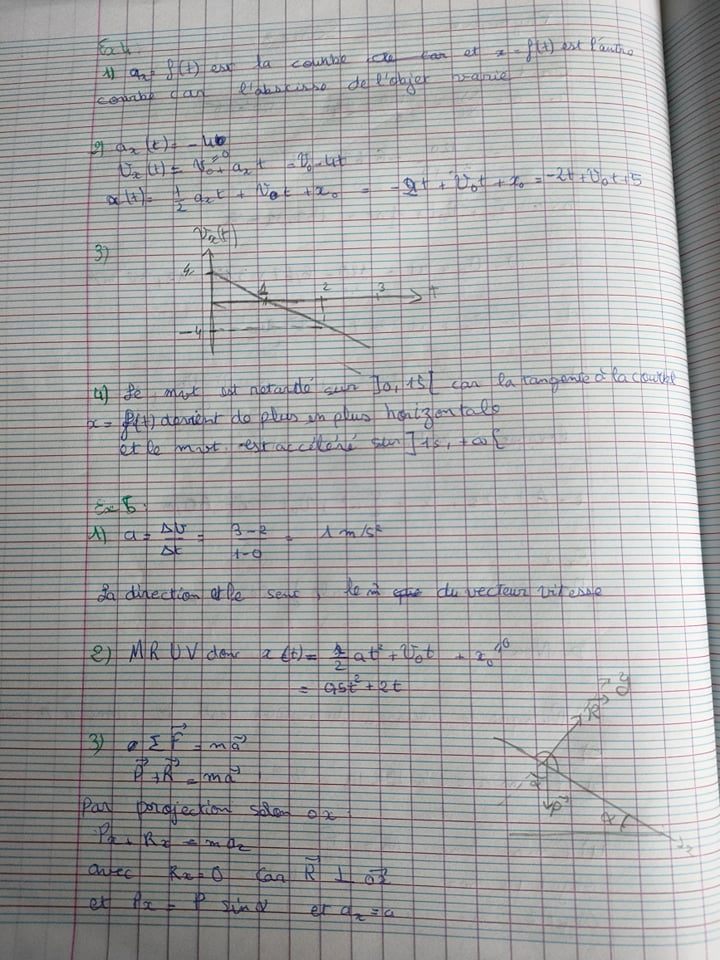 Ex 4.
1) ax = f(t) est la courbe et x = f(t) est l'autre
courbe car l'abscisse de l'objet varie
2) ax(t) = -4
Vx(t) = V0 + ax t = V0 - 4t
x(t) = 1/2 ax t + V0 t + x0 = -2t + V0 t + x0 = -2t + V0 t + 5
3)
Vx(t)
4
1 2 3 t
-4
4) Le mvt est retardé sur ]0, 1s[ car la tangente à la courbe
x = f(t) devient de plus en plus horizontale
et le mvt est accéléré sur ]1s, +∞[
Ex 5:
1) a = ΔV/Δt = 3-2/1-0 = 1 m/s²
La direction et le sens, le m̂ que du vecteur vitesse
2) MRUV donc x(t) = 1/2 at² + V0t + x0
= 0,5t² + 2t
3) Σ F⃗ = m a⃗
P⃗ + R⃗ = m a⃗
y
R⃗
P⃗
α
x
Par projection selon ox:
Px + Rx = m ax
avec Rx = 0 car R⃗ ⊥ ox⃗
et Px = P sin α et ax = a